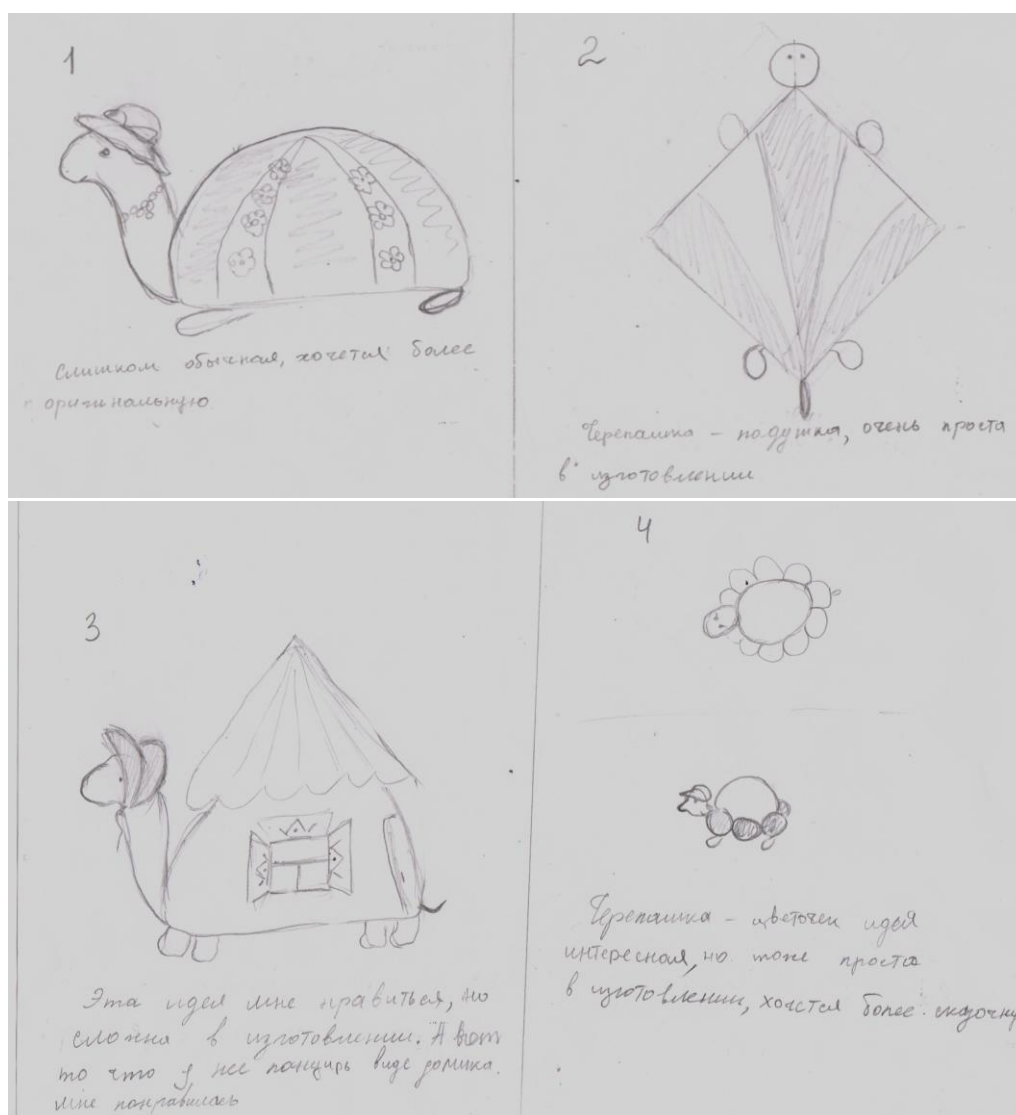 1
Слишком обычная, хочется более
оригинальную
2
Черепашка - подушка, очень проста
в изготовлении
3
Эта идея мне нравиться, но
сложна в изготовлении. А вот
то что у нее панцирь виде домика.
мне понравилась
4
Черепашка - цветочек идея
интересная, но тоже проста
в изготовлении, хочется более сказочну